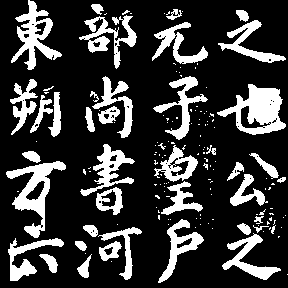 之也公之
元子皇戶
部尚書河
東朔方六